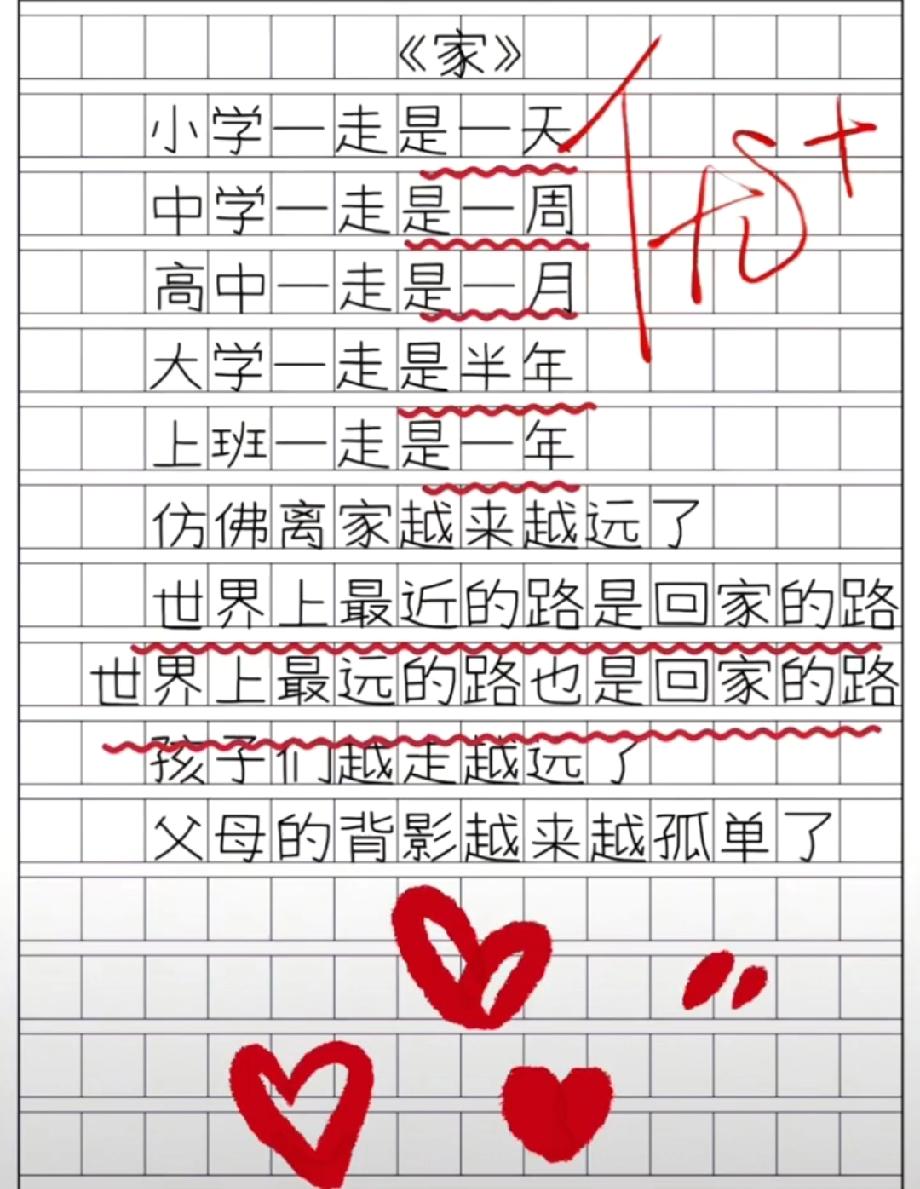 《家》
优+
小学一走是一天
中学一走是一周
高中一走是一月
大学一走是半年
上班一走是一年
仿佛离家越来越远了
世界上最近的路是回家的路
世界上最远的路也是回家的路
孩子们越走越远了
父母的背影越来越孤单了